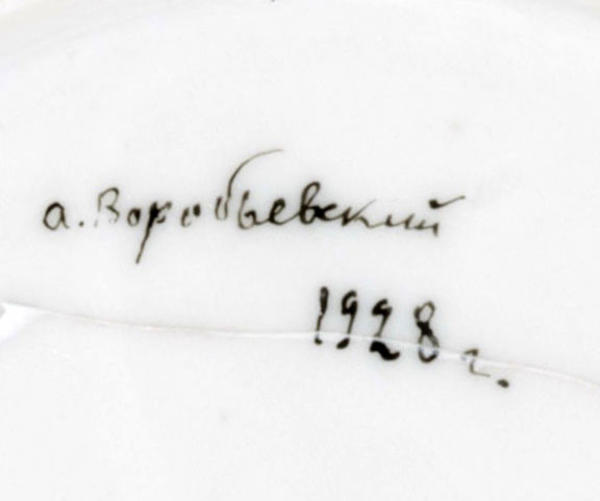 а. Воробьевский
1928 г.